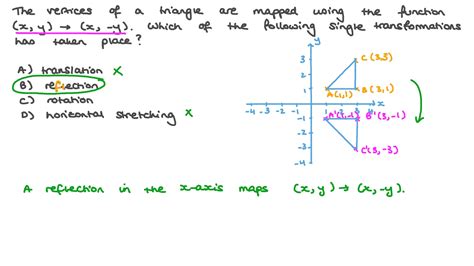 The vertices of a triangle are mapped using the function
(x, y) → (x, -y). Which of the following single transformations
has taken place?
A) translation ×
B) reflection
C) rotation
D) horizontal stretching ×
y
3
2
1
-4 -3 -2 -1 1 2 3 4 x
-1
-2
-3
-4
C(3,3)
A(1,1) B(3,1)
A'(1,-1) B'(3,-1)
C'(3,-3)
A reflection in the x-axis maps (x, y) → (x, -y).